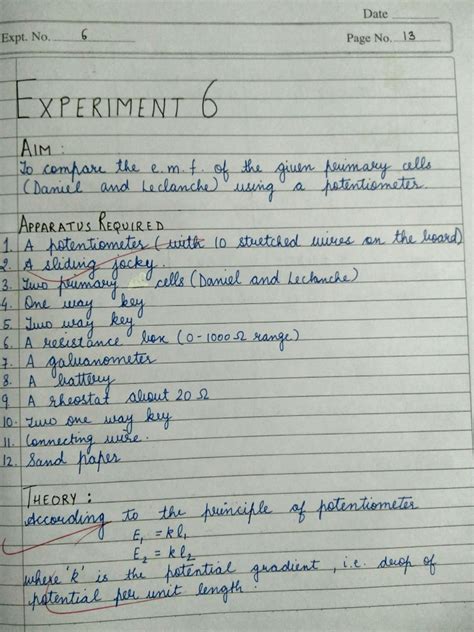 Date
Expt. No. 6
Page No. 13
EXPERIMENT 6
AIM :
To compare the e.m.f. of the given primary cells
(Daniel and Leclanche) using a potentiometer.
APPARATUS REQUIRED
1. A potentiometer (with 10 stretched wires on the board)
2. A sliding jocky.
3. Two primary cells (Daniel and Leclanche)
4. One way key
5. Two way key
6. A resistance box (0-1000 Ω range)
7. A galvanometer
8. A battery
9 A rheostat about 20 Ω
10. Two one way key
11. Connecting wire.
12. Sand paper
THEORY :
According to the principle of potentiometer
E₁ = kl₁
E₂ = kl₂
where 'k' is the potential gradient, i.e. drop of
potential per unit length.